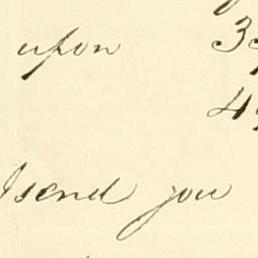 upon 3
4
I send you